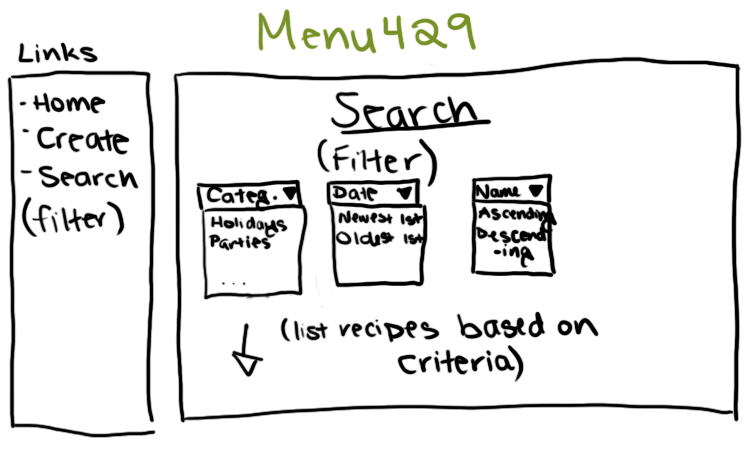 Menu429
Links
- Home
- Create
- Search
(filter)
Search
(Filter)
Categ. ▼
Holidays
Parties
...
Date ▼
Newest 1st
Oldest 1st
Name ▼
Ascending
Descend
-ing
(list recipes based on
criteria)